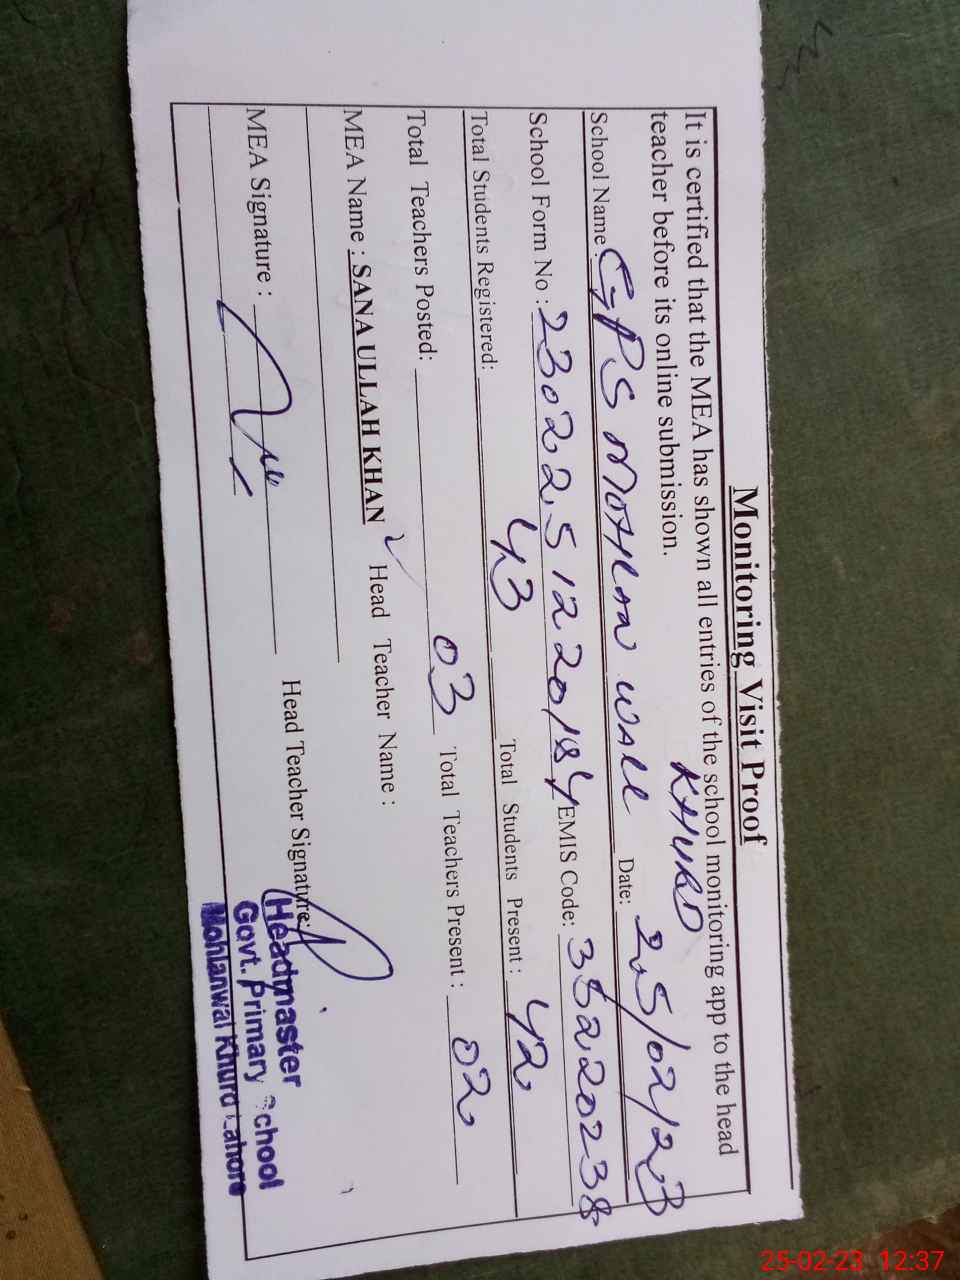 Monitoring Visit Proof
It is certified that the MEA has shown all entries of the school monitoring app to the head
teacher before its online submission.
KHURD
School Name: GPS MOHLAN WALL Date: 25/02/23
School Form No: 2302251220184 EMIS Code: 35220238
Total Students Registered: 43 Total Students Present: 42
Total Teachers Posted: 03 Total Teachers Present: 02
MEA Name: SANA ULLAH KHAN Head Teacher Name:
MEA Signature: Head Teacher Signature:
Headmaster
Govt. Primary School
Mohlanwal Khurd Lahore
25-02-23 12:37